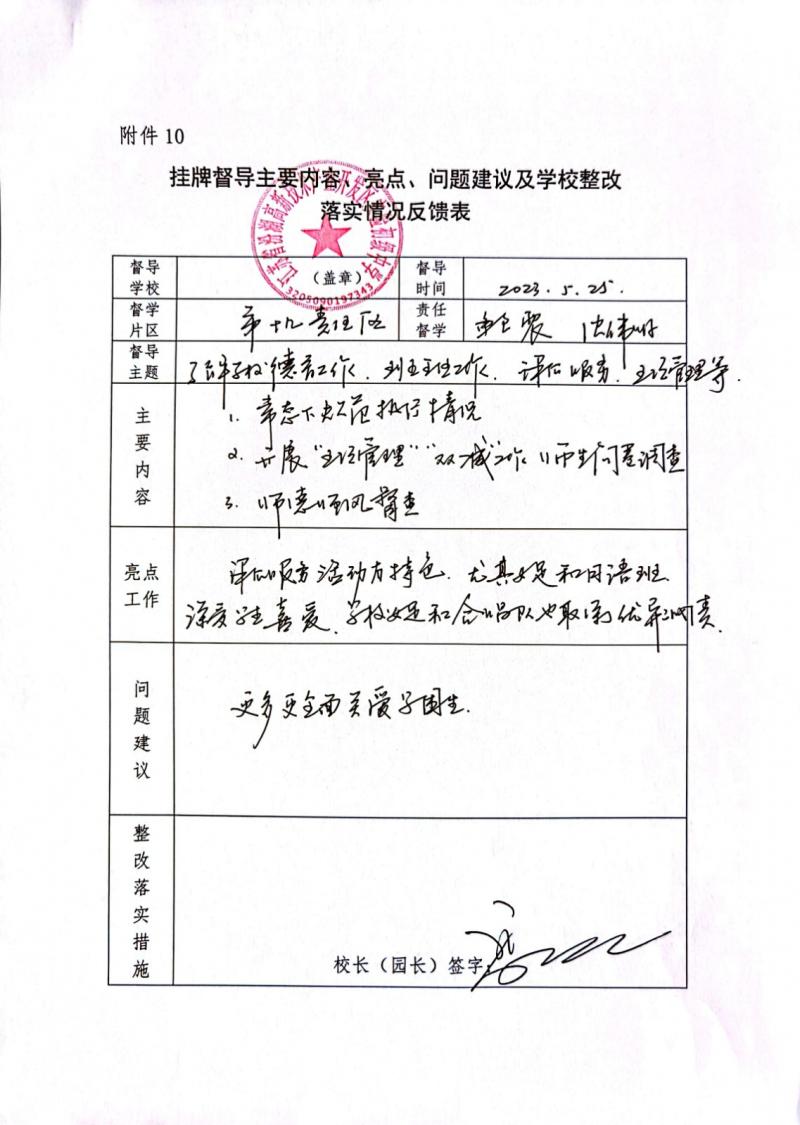 附件 10
挂牌督导主要内容、亮点、问题建议及学校整改
落实情况反馈表
督导学校
(盖章)
3205090197343
督导时间
2023.5.25.
督学片区
第十九责任区
责任督学
督导主题
了解学校德育工作、班主任工作、课后服务、五项管理等.
主要内容
1. 常态下办学规范执行情况
2. 开展“五项管理”“双减”工作师生问卷调查
3. 师德师风督查
亮点工作
课后服务活动有特色.尤其女足和日语班
深受学生喜爱.学校女足和合唱队也取得优异成绩.
问题建议
更多更全面关爱学困生.
整改落实措施
校长(园长)签字: